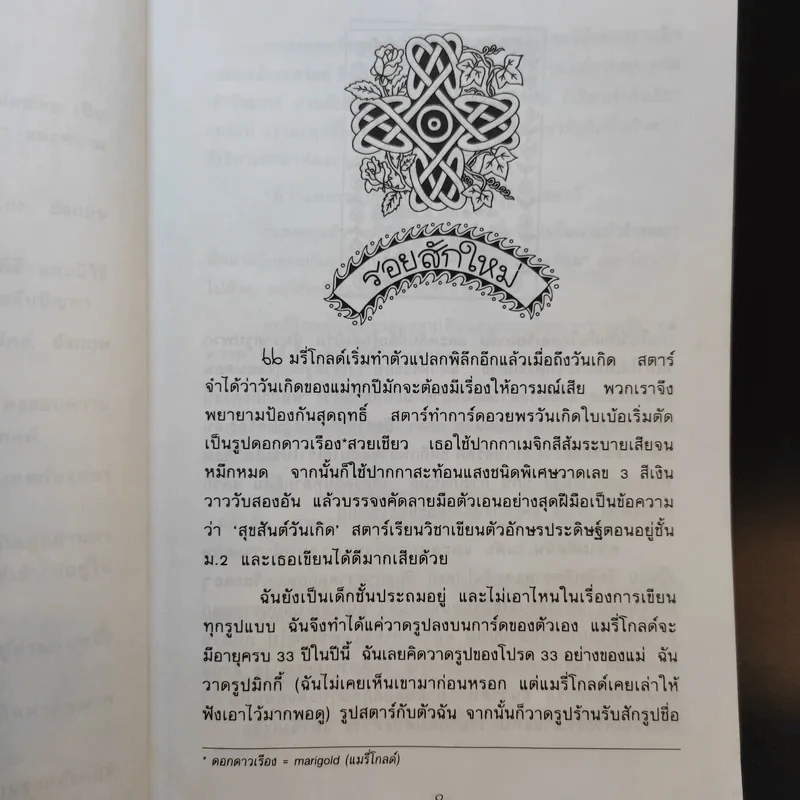 รอยสักใหม่
แมรี่โกลด์เริ่มทำตัวแปลกพิลึกอีกแล้วเมื่อถึงวันเกิด สตาร์
จำได้ว่าวันเกิดของแม่ทุกปีมักจะต้องมีเรื่องให้อารมณ์เสีย พวกเราจึง
พยายามป้องกันสุดฤทธิ์ สตาร์ทำการ์ดอวยพรวันเกิดใบเบ้อเริ่มตัด
เป็นรูปดอกดาวเรือง*สวยเชียว เธอใช้ปากกาเมจิกสีส้มระบายเสียจน
หมึกหมด จากนั้นก็ใช้ปากกาสะท้อนแสงชนิดพิเศษวาดเลข 3 สีเงิน
วาววับสองอัน แล้วบรรจงคัดลายมือตัวเอนอย่างสุดฝีมือเป็นข้อความ
ว่า ‘สุขสันต์วันเกิด’ สตาร์เรียนวิชาเขียนตัวอักษรประดิษฐ์ตอนอยู่ชั้น
ม.2 และเธอเขียนได้ดีมากเสียด้วย
ฉันยังเป็นเด็กชั้นประถมอยู่ และไม่เอาไหนในเรื่องการเขียน
ทุกรูปแบบ ฉันจึงทำได้แค่วาดรูปลงบนการ์ดของตัวเอง แมรี่โกลด์จะ
มีอายุครบ 33 ปีในปีนี้ ฉันเลยคิดวาดรูปของโปรด 33 อย่างของแม่ ฉัน
วาดรูปมิกกี้ (ฉันไม่เคยเห็นเขามาก่อนหรอก แต่แมรี่โกลด์เคยเล่าให้
ฟังเอาไว้มากพอดู) รูปสตาร์กับตัวฉัน จากนั้นก็วาดรูปร้านรับสักรูปชื่อ
* ดอกดาวเรือง = marigold (แมรี่โกลด์)